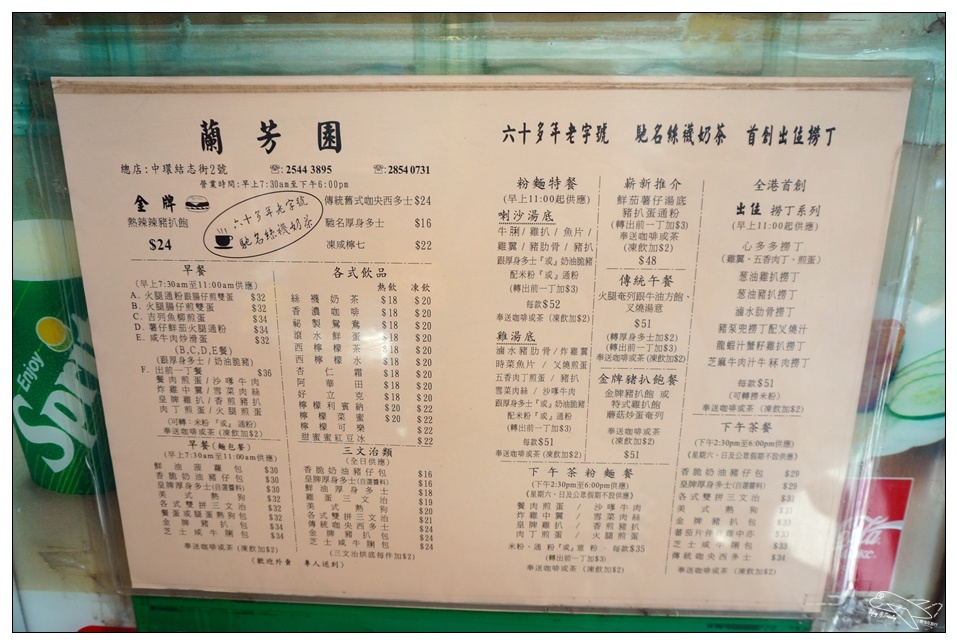 蘭芳園
總店:中環結志街2號 ☏:2544 3895 ☏:2854 0731
營業時間:早上7:30am至下午6:00pm
金牌
熱辣辣豬扒飽
$24
六十多年老字號
馳名絲襪奶茶
傳統舊式咖央西多士 $24
馳名厚身多士 $16
凍咸檸七 $22
早餐
(早上7:30am至11:00am供應)
A. 火腿通粉跟腸仔煎雙蛋 $32
B. 火腿腸仔煎雙蛋 $32
C. 吉列魚柳煎蛋 $34
D. 薯仔鮮茄火腿通粉 $34
E. 咸牛肉炒滑蛋 $32
(B,C,D,E餐)
(跟厚身多士/奶油脆豬)
F. 出前一丁餐 $36
餐肉煎蛋/沙嗲牛肉
炸雞中翼/雪菜肉絲
皇牌雞扒/香煎豬扒
肉丁煎蛋/火腿煎蛋
(可轉:米粉『或』通粉)
奉送咖啡或茶(凍飲加$2)
早餐(麵包餐)
(早上7:30am至11:00am供應)
鮮油菠蘿包 $30
香脆奶油豬仔包 $30
皇牌厚身多士(自選醬料) $30
美式熱狗 $32
各式雙拼三文治 $32
餐蛋或腿蛋熱狗包 $32
金牌豬扒包 $34
芝士咸牛脷包 $34
奉送咖啡或茶(凍飲加$2)
各式飲品
熱飲 凍飲
絲襪奶茶 $18 $20
香濃咖啡 $18 $20
祕製鴛鴦 $18 $20
滾水鮮蛋 $18 $20
西檸檬茶 $18 $20
西檸檬水 $18 $20
杏仁霜 $18 $20
阿華田 $18 $20
好立克 $18 $20
檸檬利賓納 $20 $22
檸檬菜蜜 $20 $22
檸檬可樂 $22
甜蜜蜜紅豆冰 $22
三文治類
(全日供應)
香脆奶油豬仔包 $16
皇牌厚身多士(自選醬料) $16
鮮油厚身多士 $18
雞蛋三文治 $19
美式熱狗 $20
各式雙拼三文治 $21
傳統咖央西多士 $24
金牌豬扒包 $24
芝士咸牛脷包 $24
(三文治烘底每件加$2)
(歡迎外賣 專人送到)
六十多年老字號 馳名絲襪奶茶 首創出位撈丁
粉麵特餐
(早上11:00起供應)
喇沙湯底
牛脷/雞扒/魚片/
雞翼/豬肋骨/豬扒
跟厚身多士『或』奶油脆豬
配米粉『或』通粉
(轉出前一丁加$3)
每款$52
奉送咖啡或茶(凍飲加$2)
雞湯底
滷水豬肋骨/炸雞翼
時菜魚片/叉燒煎蛋
五香肉丁煎蛋/豬扒
雪菜肉絲/沙嗲牛肉
跟厚身多士『或』奶油脆豬
配米粉『或』通粉
(轉出前一丁加$3)
每款$51
奉送咖啡或茶(凍飲加$2)
嶄新推介
鮮茄薯仔湯底
豬扒蛋通粉
(轉出前一丁加$3)
奉送咖啡或茶
(凍飲加$2)
$48
傳統午餐
火腿奄列跟牛油方飽、
叉燒湯意
$51
(轉厚身多士加$2)
(轉出前一丁加$3)
奉送咖啡或茶(凍飲加$2)
金牌豬扒飽餐
金牌豬扒飽或
特式雞扒飽
蘑菇炒蛋奄列
奉送咖啡或茶
(凍飲加$2)
$51
全港首創
出位 撈丁系列
(早上11:00起供應)
心多多撈丁
(雞翼、五香肉丁、煎蛋)
葱油雞扒撈丁
葱油豬扒撈丁
滷水肋骨撈丁
豬泵兜撈丁配叉燒汁
龍蝦汁蟹籽雞扒撈丁
芝麻牛肉汁牛冧肉撈丁
每款$51
(可轉撈米粉)
奉送咖啡或茶(凍飲加$2)
下午茶粉麵餐
(下午2:30pm至6:00pm供應)
(星期六、日及公眾假期不設供應)
餐肉煎蛋/沙嗲牛肉
炸雞中翼/雪菜肉絲
皇牌雞扒/香煎豬扒
肉丁煎蛋/火腿煎蛋
米粉、通粉『或』意粉、每款$35
(轉出前一丁加$3)
奉送咖啡或茶(凍飲加$2)
下午茶餐
(下午2:30pm至6:00pm供應)
(星期六、日及公眾假期不設供應)
香脆奶油豬仔包 $29
皇牌厚身多士(自選醬料) $29
各式雙拼三文治 $31
美式熱狗 $31
金牌豬扒包 $33
蕃茄片伴炸雞中亦 $33
芝士咸牛脷包 $33
傳統咖央西多士 $34
奉送咖啡或茶(凍飲加$2)
Enjoy
Sprite